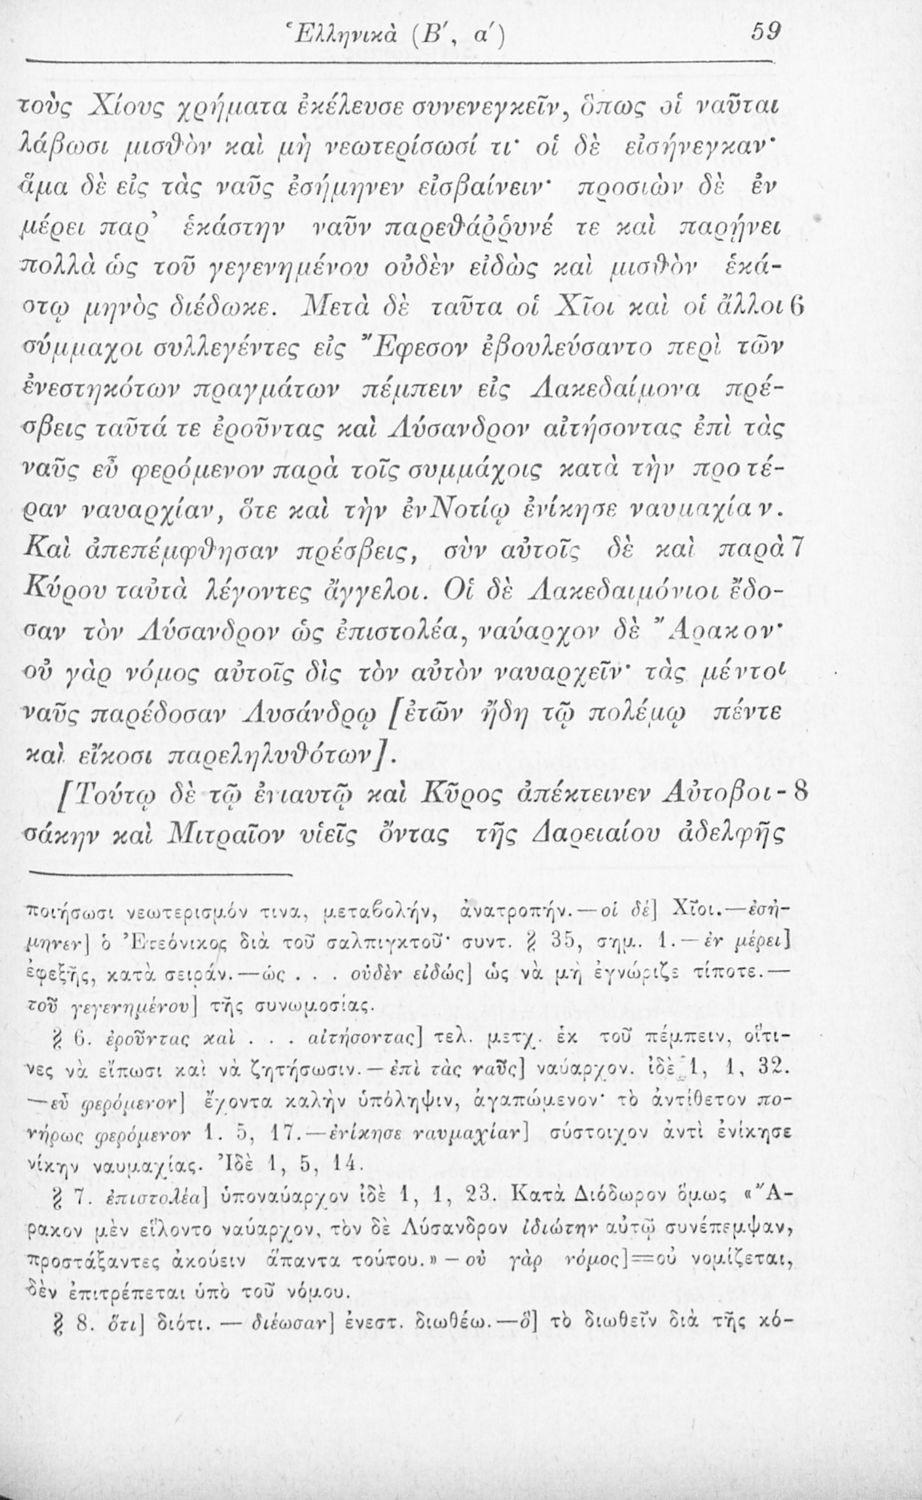 Ἑλληνικὰ (Β′, α′) 59
τοὺς Χίους χρήματα ἐκέλευσε συνενεγκεῖν, ὅπως οἱ ναῦται
λάβωσι μισθὸν καὶ μὴ νεωτερίσωσί τι· οἱ δὲ εἰσήνεγκαν·
ἅμα δὲ εἰς τὰς ναῦς ἐσήμηνεν εἰσβαίνειν· προσιὼν δὲ ἐν
μέρει παρ’ ἑκάστην ναῦν παρεθάῤῥυνέ τε καὶ παρῄνει
πολλὰ ὡς τοῦ γεγενημένου οὐδὲν εἰδὼς καὶ μισθὸν ἑκά-
στῳ μηνὸς διέδωκε. Μετὰ δὲ ταῦτα οἱ Χῖοι καὶ οἱ ἄλλοι 6
σύμμαχοι συλλεγέντες εἰς Ἔφεσον ἐβουλεύσαντο περὶ τῶν
ἐνεστηκότων πραγμάτων πέμπειν εἰς Λακεδαίμονα πρέ-
σβεις ταῦτά τε ἐροῦντας καὶ Λύσανδρον αἰτήσοντας ἐπὶ τὰς
ναῦς εὖ φερόμενον παρὰ τοῖς συμμάχοις κατὰ τὴν προτέ-
ραν ναυαρχίαν, ὅτε καὶ τὴν ἐν Νοτίῳ ἐνίκησε ναυμαχίαν.
Καὶ ἀπεπέμφθησαν πρέσβεις, σὺν αὐτοῖς δὲ καὶ παρὰ 7
Κύρου ταὐτὰ λέγοντες ἄγγελοι. Οἱ δὲ Λακεδαιμόνιοι ἔδο-
σαν τὸν Λύσανδρον ὡς ἐπιστολέα, ναύαρχον δὲ Ἄρακον·
οὐ γὰρ νόμος αὐτοῖς δὶς τὸν αὐτὸν ναυαρχεῖν· τὰς μέντοι
ναῦς παρέδοσαν Λυσάνδρῳ [ἐτῶν ἤδη τῷ πολέμῳ πέντε
καὶ εἴκοσι παρεληλυθότων].
[Τούτῳ δὲ τῷ ἐνιαυτῷ καὶ Κῦρος ἀπέκτεινεν Αὐτοβοι- 8
σάκην καὶ Μιτραῖον υἱεῖς ὄντας τῆς Δαρειαίου ἀδελφῆς
ποιήσωσι νεωτερισμόν τινα, μεταβολήν, ἀνατροπήν.—οἱ δέ] Χῖοι.—ἐσή-
μηνεν] ὁ Ἐτεόνικος διὰ τοῦ σαλπιγκτοῦ· συντ. § 35, σημ. 1.—ἐν μέρει]
ἐφεξῆς, κατὰ σειράν.—ὡς . . . οὐδὲν εἰδώς] ὡς νὰ μὴ ἐγνώριζε τίποτε.—
τοῦ γεγενημένου] τῆς συνωμοσίας.
§ 6. ἐροῦντας καὶ . . . αἰτήσοντας] τελ. μετχ. ἐκ τοῦ πέμπειν, οἵτι-
νες νὰ εἴπωσι καὶ νὰ ζητήσωσιν.—ἐπὶ τὰς ναῦς] ναύαρχον. ἰδὲ 1, 1, 32.
—εὖ φερόμενον] ἔχοντα καλὴν ὑπόληψιν, ἀγαπώμενον· τὸ ἀντίθετον πο-
νήρως φερόμενον 1. 5, 17.—ἐνίκησε ναυμαχίαν] σύστοιχον ἀντὶ ἐνίκησε
νίκην ναυμαχίας. Ἰδὲ 1, 5, 14.
§ 7. ἐπιστολέα] ὑποναύαρχον ἰδὲ 1, 1, 23. Κατὰ Διόδωρον ὅμως «Ἄ-
ρακον μὲν εἵλοντο ναύαρχον, τὸν δὲ Λύσανδρον ἰδιώτην αὐτῷ συνέπεμψαν,
προστάξαντες ἀκούειν ἅπαντα τούτου.» — οὐ γὰρ νόμος]=οὐ νομίζεται,
δὲν ἐπιτρέπεται ὑπὸ τοῦ νόμου.
§ 8. ὅτι] διότι. — διέωσαν] ἐνεστ. διωθέω.—ὃ] τὸ διωθεῖν διὰ τῆς κό-